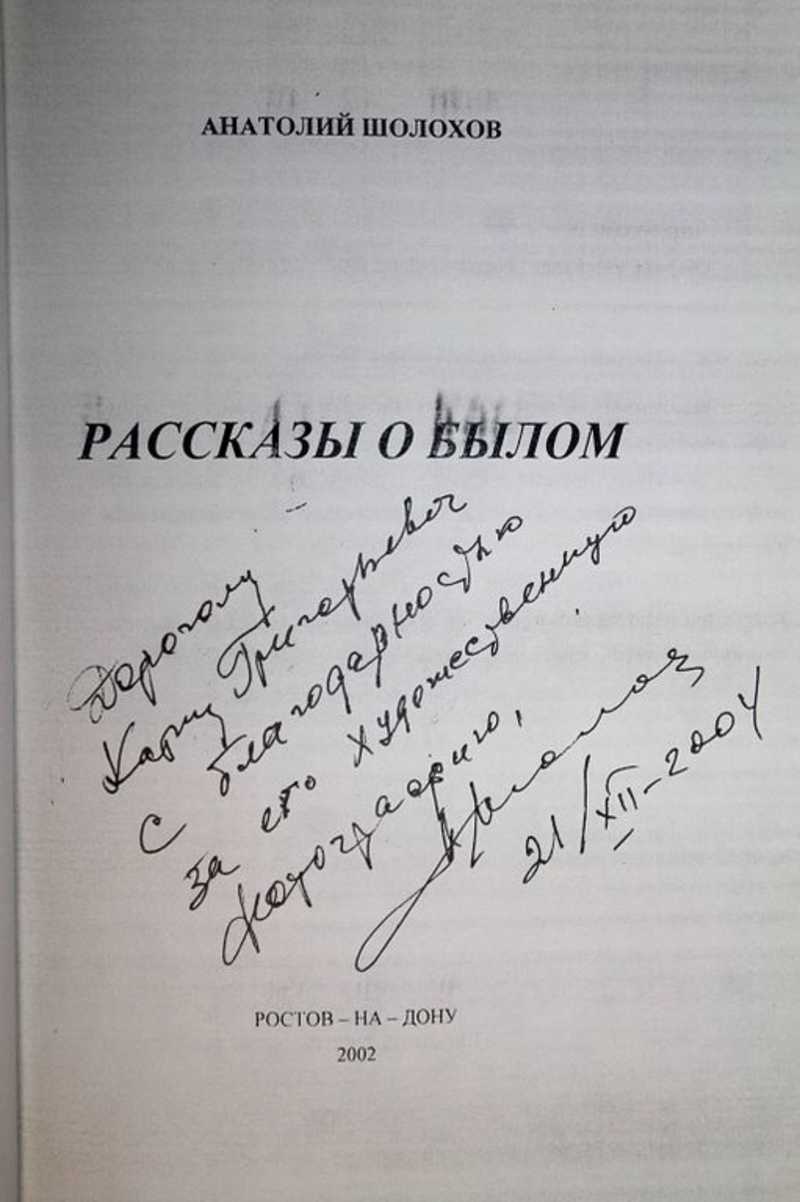 АНАТОЛИЙ ШОЛОХОВ
РАССКАЗЫ О БЫЛОМ
Дорогому
Григорьевич
С благодарностью
за его художественную
фотографию,
21/XII-2004
РОСТОВ – НА – ДОНУ
2002